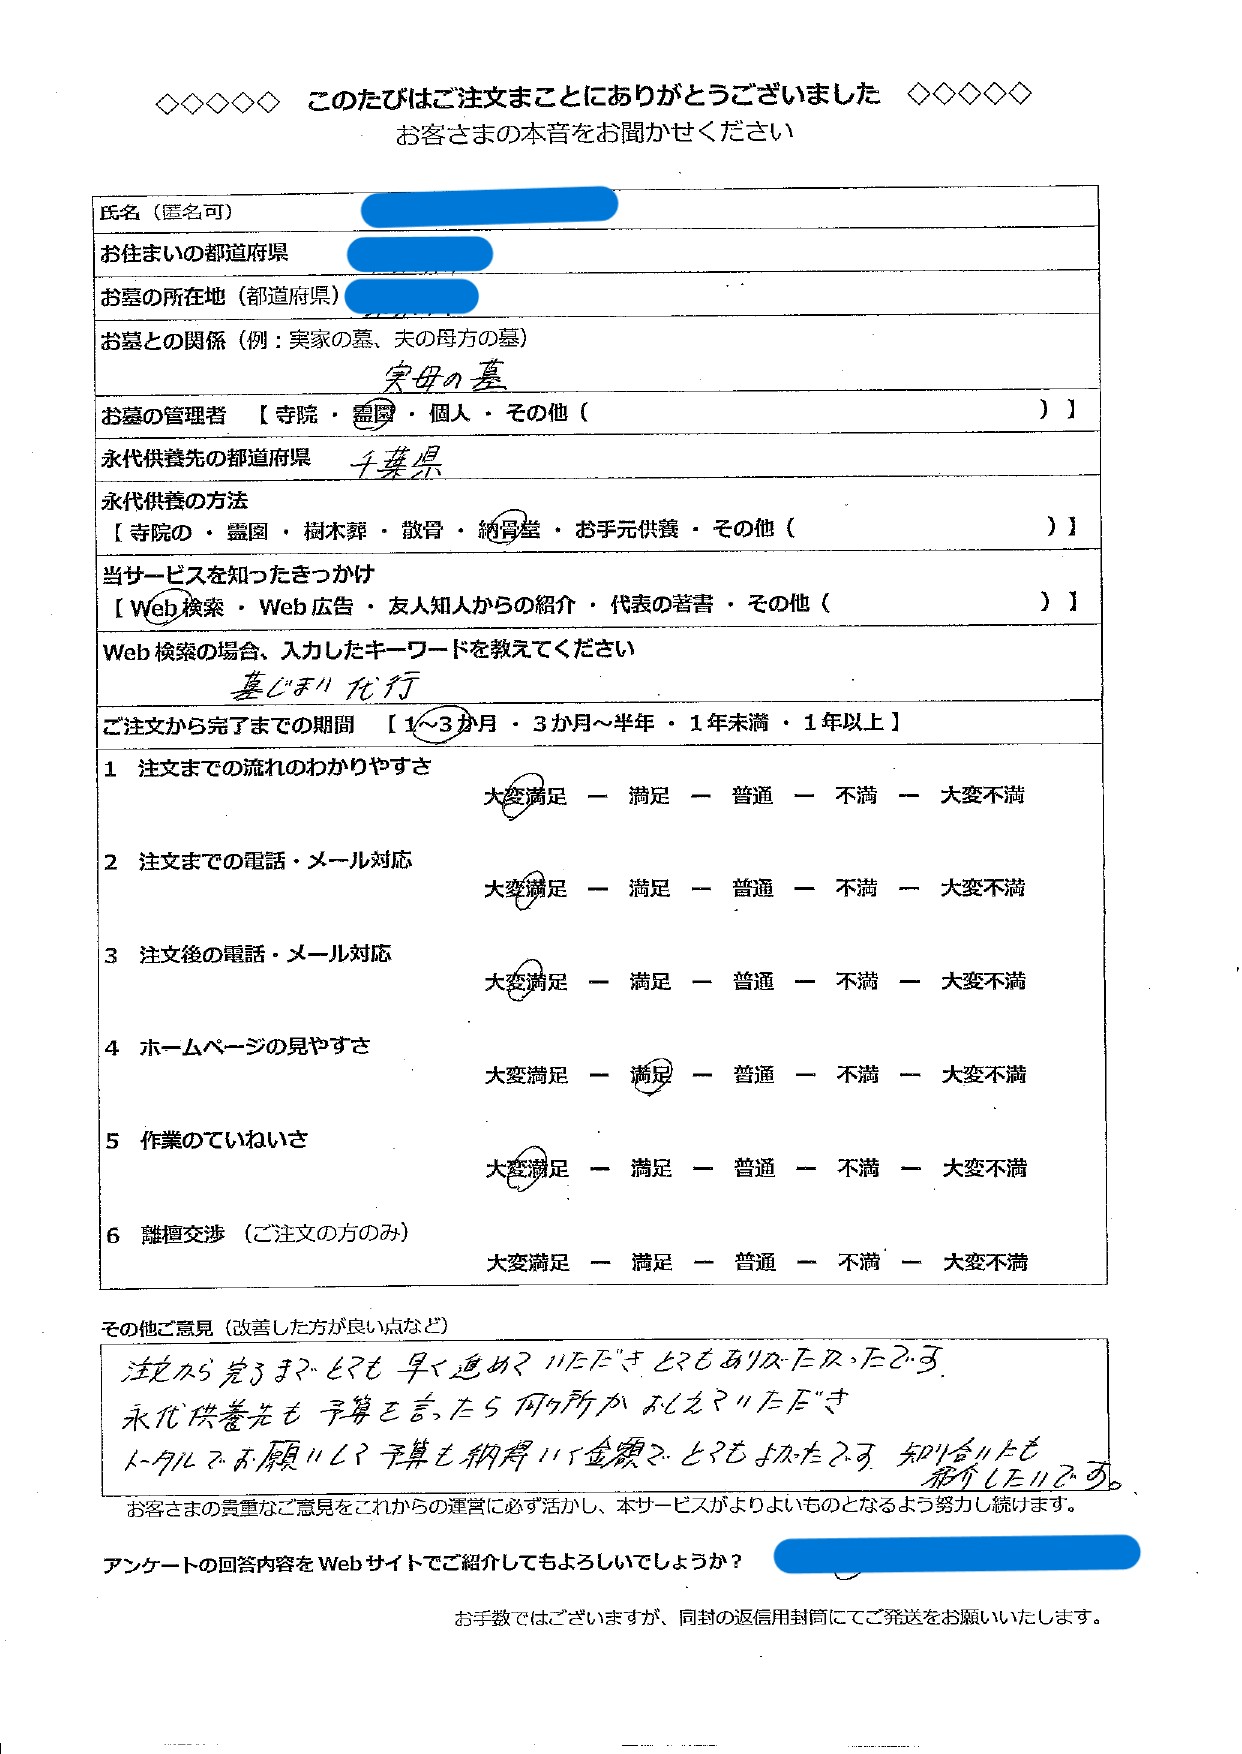 ◇◇◇◇◇ このたびはご注文まことにありがとうございました ◇◇◇◇◇
お客さまの本音をお聞かせください
氏名（匿名可）
お住まいの都道府県
お墓の所在地（都道府県）
お墓との関係（例：実家の墓、夫の母方の墓）
実母の墓
お墓の管理者 【 寺院 ・ 霊園 ・ 個人 ・ その他（ ）】
永代供養先の都道府県 千葉県
永代供養の方法
【 寺院の ・ 霊園 ・ 樹木葬 ・ 散骨 ・ 納骨堂 ・ お手元供養 ・ その他（ ）】
当サービスを知ったきっかけ
【 Web検索 ・ Web広告 ・ 友人知人からの紹介 ・ 代表の著書 ・ その他（ ）】
Web検索の場合、入力したキーワードを教えてください
墓じまい 代行
ご注文から完了までの期間 【 1～3か月 ・ 3か月～半年 ・ 1年未満 ・ 1年以上 】
1 注文までの流れのわかりやすさ
大変満足 ー 満足 ー 普通 ー 不満 ー 大変不満
2 注文までの電話・メール対応
大変満足 ー 満足 ー 普通 ー 不満 ー 大変不満
3 注文後の電話・メール対応
大変満足 ー 満足 ー 普通 ー 不満 ー 大変不満
4 ホームページの見やすさ
大変満足 ー 満足 ー 普通 ー 不満 ー 大変不満
5 作業のていねいさ
大変満足 ー 満足 ー 普通 ー 不満 ー 大変不満
6 離檀交渉 （ご注文の方のみ）
大変満足 ー 満足 ー 普通 ー 不満 ー 大変不満
その他ご意見（改善した方が良い点など）
注文から完るまでとても 早く進めていただき とてもありがたかったです.
永代供養先も 予算を言ったら 何ヶ所か おしえていただき
トータルでお願いして予算も納得いく金額で とてもよかったです 知り合いにも
紹介したいです。
お客さまの貴重なご意見をこれからの運営に必ず活かし、本サービスがよりよいものとなるよう努力し続けます。
アンケートの回答内容をWebサイトでご紹介してもよろしいでしょうか？
お手数ではございますが、同封の返信用封筒にてご発送をお願いいたします。